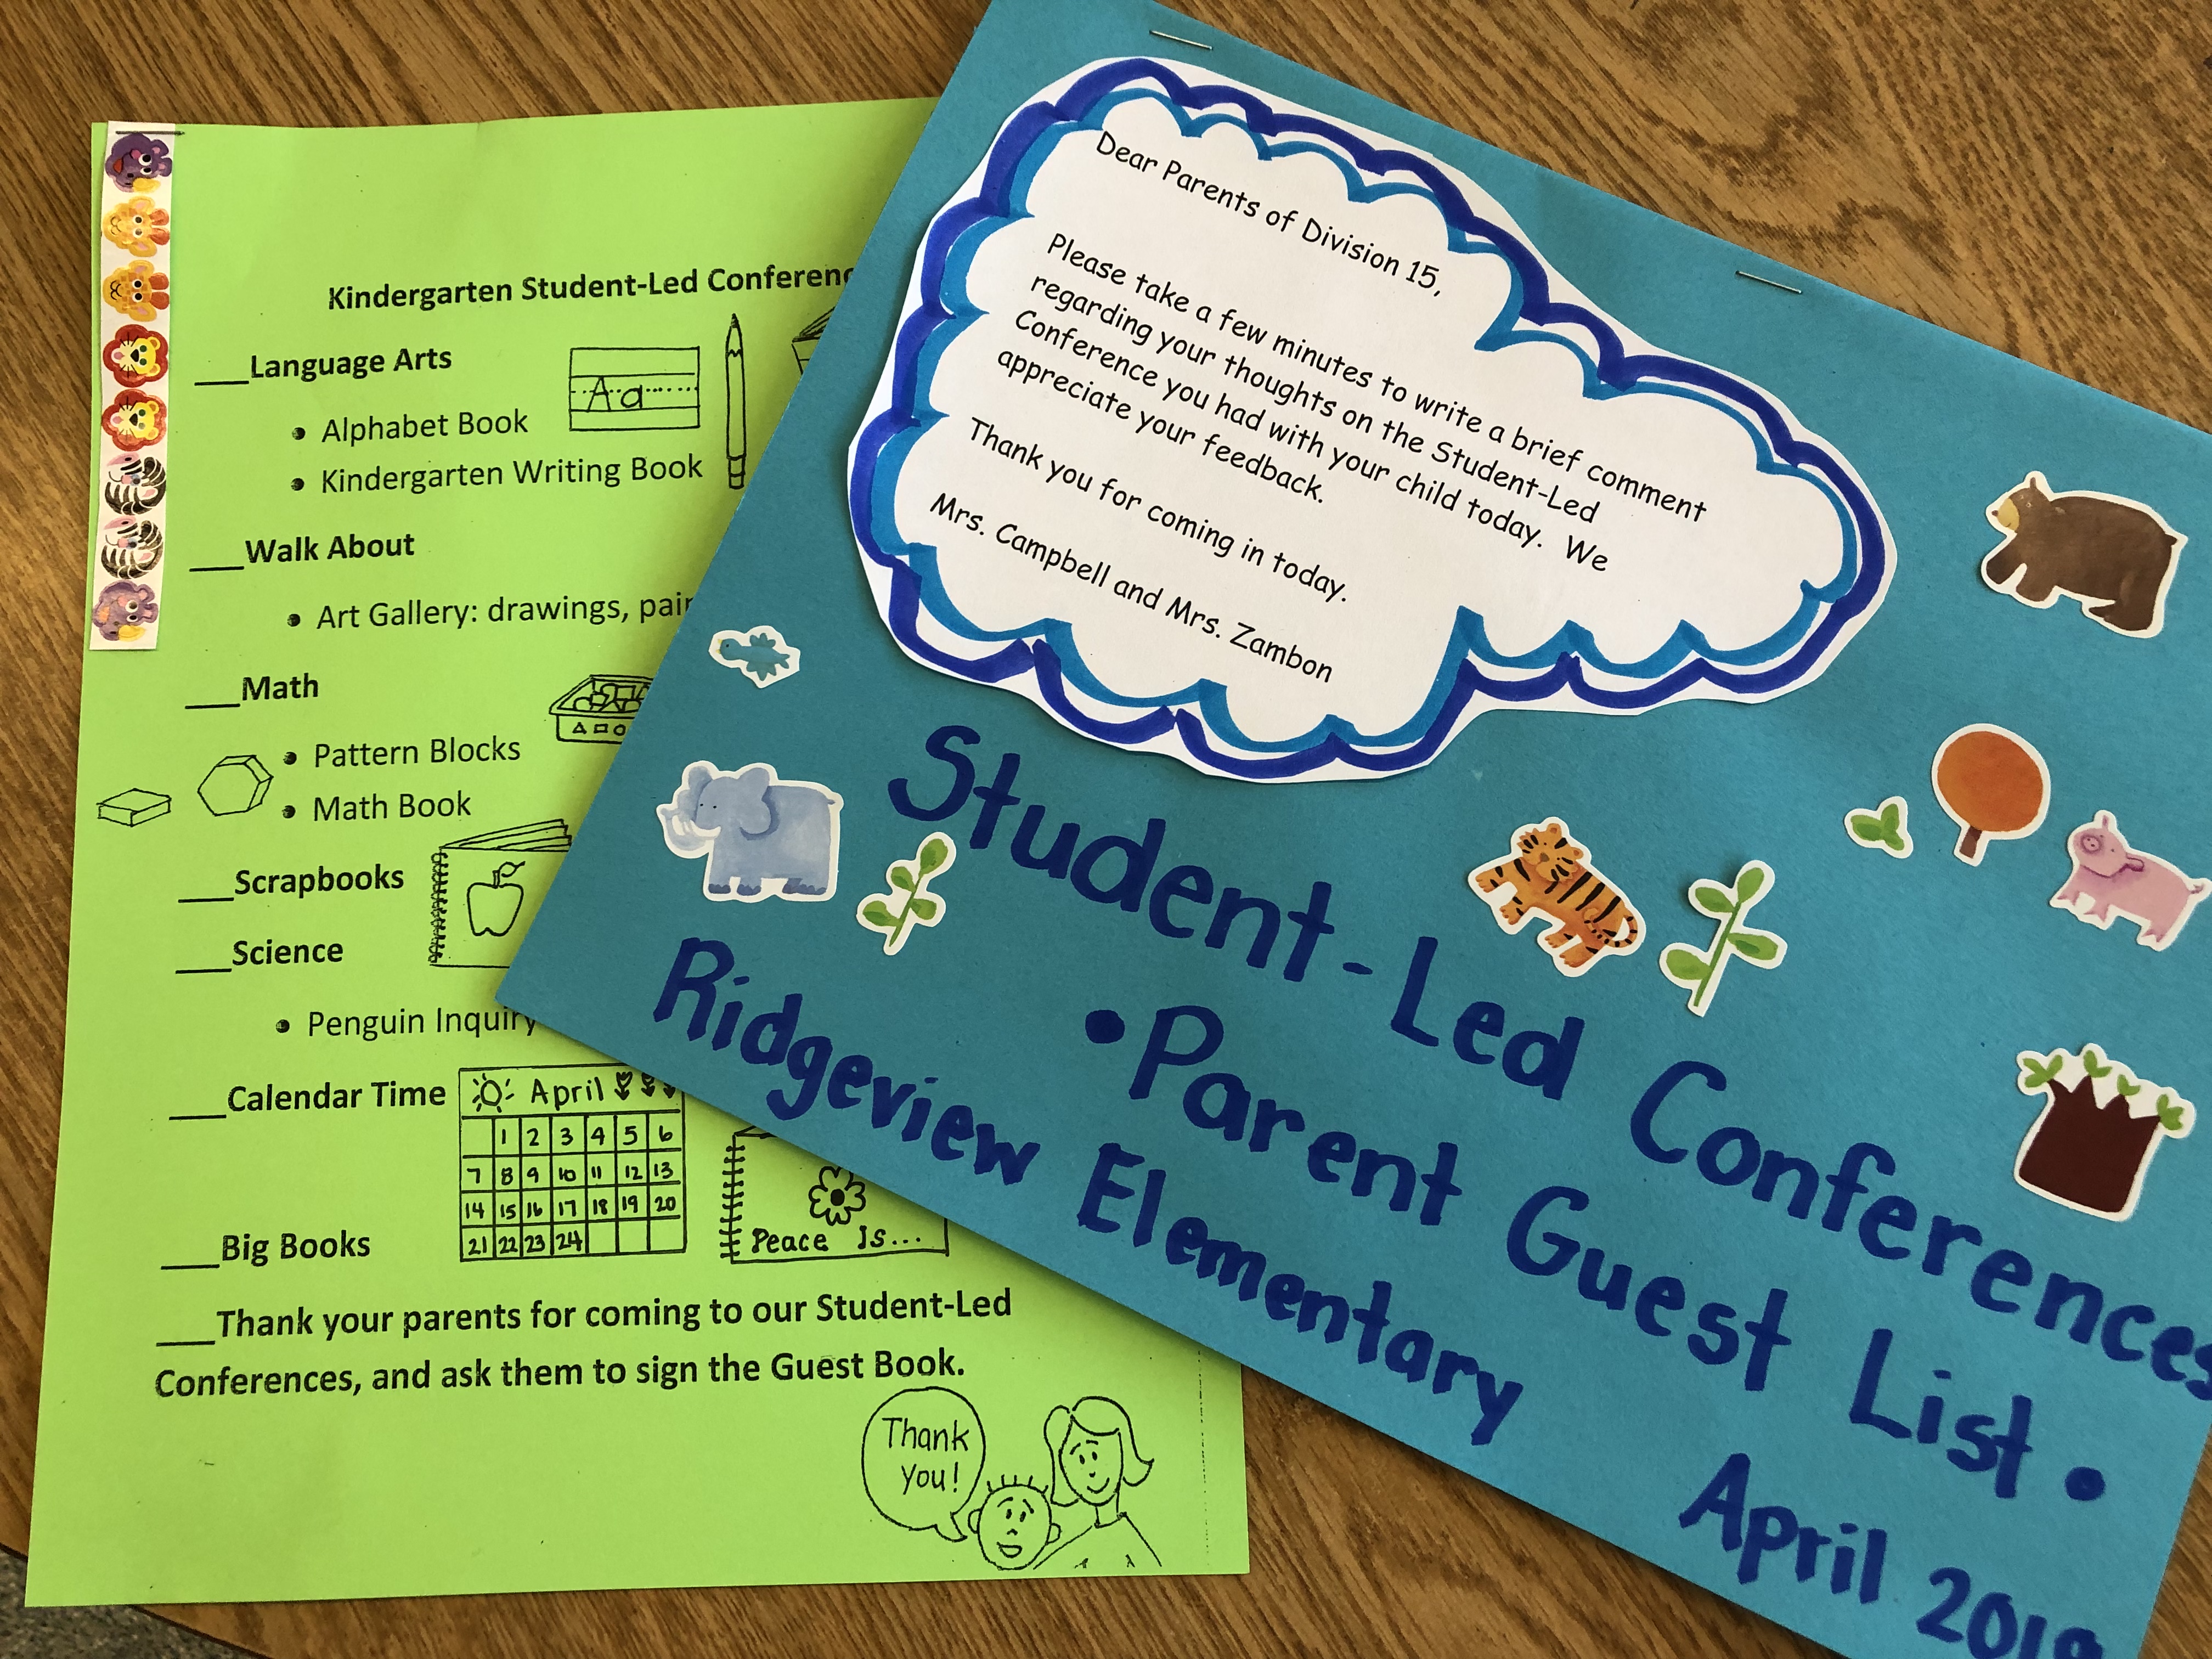 Kindergarten Student-Led
___Language Arts
Aa
• Alphabet Book
• Kindergarten Writing Book
___Walk About
• Art Gallery: drawings,
___Math
• Pattern Blocks
• Math Book
___Scrapbooks
___Science
• Penguin Inquiry
___Calendar Time
April
1 2 3 4 5 6
7 8 9 10 11 12 13
14 15 16 17 18 19 20
21 22 23 24
___Big Books
Peace Is...
___Thank your parents for coming to our Student-Led
Conferences, and ask them to sign the Guest Book.
Thank
you!
Dear Parents of Division 15,
Please take a few minutes to write a brief comment
regarding your thoughts on the Student-Led
Conference you had with your child today. We
appreciate your feedback.
Thank you for coming in today.
Mrs. Campbell and Mrs. Zambon
Student-Led Conferences
• Parent Guest List •
Ridgeview Elementary
April